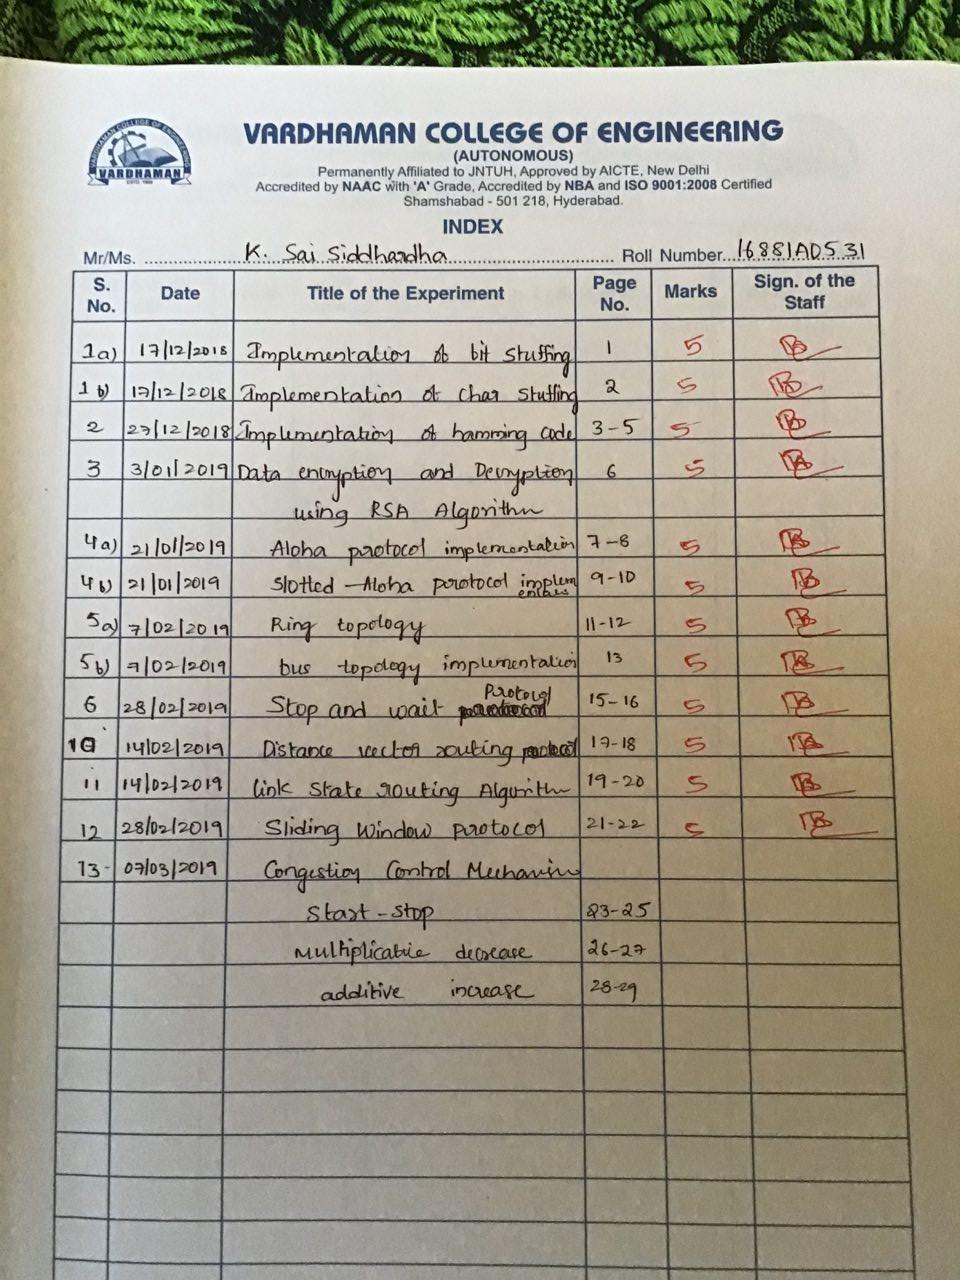 VARDHAMAN COLLEGE OF ENGINEERING
VARDHAMAN
(AUTONOMOUS)
Permanently Affiliated to JNTUH, Approved by AICTE, New Delhi
Accredited by NAAC with 'A' Grade, Accredited by NBA and ISO 9001:2008 Certified
Shamshabad - 501 218, Hyderabad.
INDEX
Mr/Ms. K. Sai Siddhardha Roll Number 16881A0531
S. No. Date Title of the Experiment Page No. Marks Sign. of the Staff
1a) 17/12/2018 Implementation of bit stuffing 1 5
1b) 17/12/2018 Implementation of char stuffing 2 5
2 27/12/2018 Implementation of hamming code 3-5 5
3 3/01/2019 Data encryption and Decryption 6 5
using RSA Algorithm
4a) 21/01/2019 Aloha protocol implementation 7-8 5
4b) 21/01/2019 Slotted-Aloha protocol 9-10 5
5a) 7/02/2019 Ring topology 11-12 5
5b) 7/02/2019 bus topology implementation 13 5
6 28/02/2019 Stop and wait Protocol 15-16 5
10 14/02/2019 Distance vector routing protocol 17-18 5
11 14/02/2019 link state routing Algorithm 19-20 5
12 28/02/2019 Sliding Window protocol 21-22 5
13- 07/03/2019 Congestion Control Mechanism
Start-stop 23-25
Multiplicative decrease 26-27
additive increase 28-29